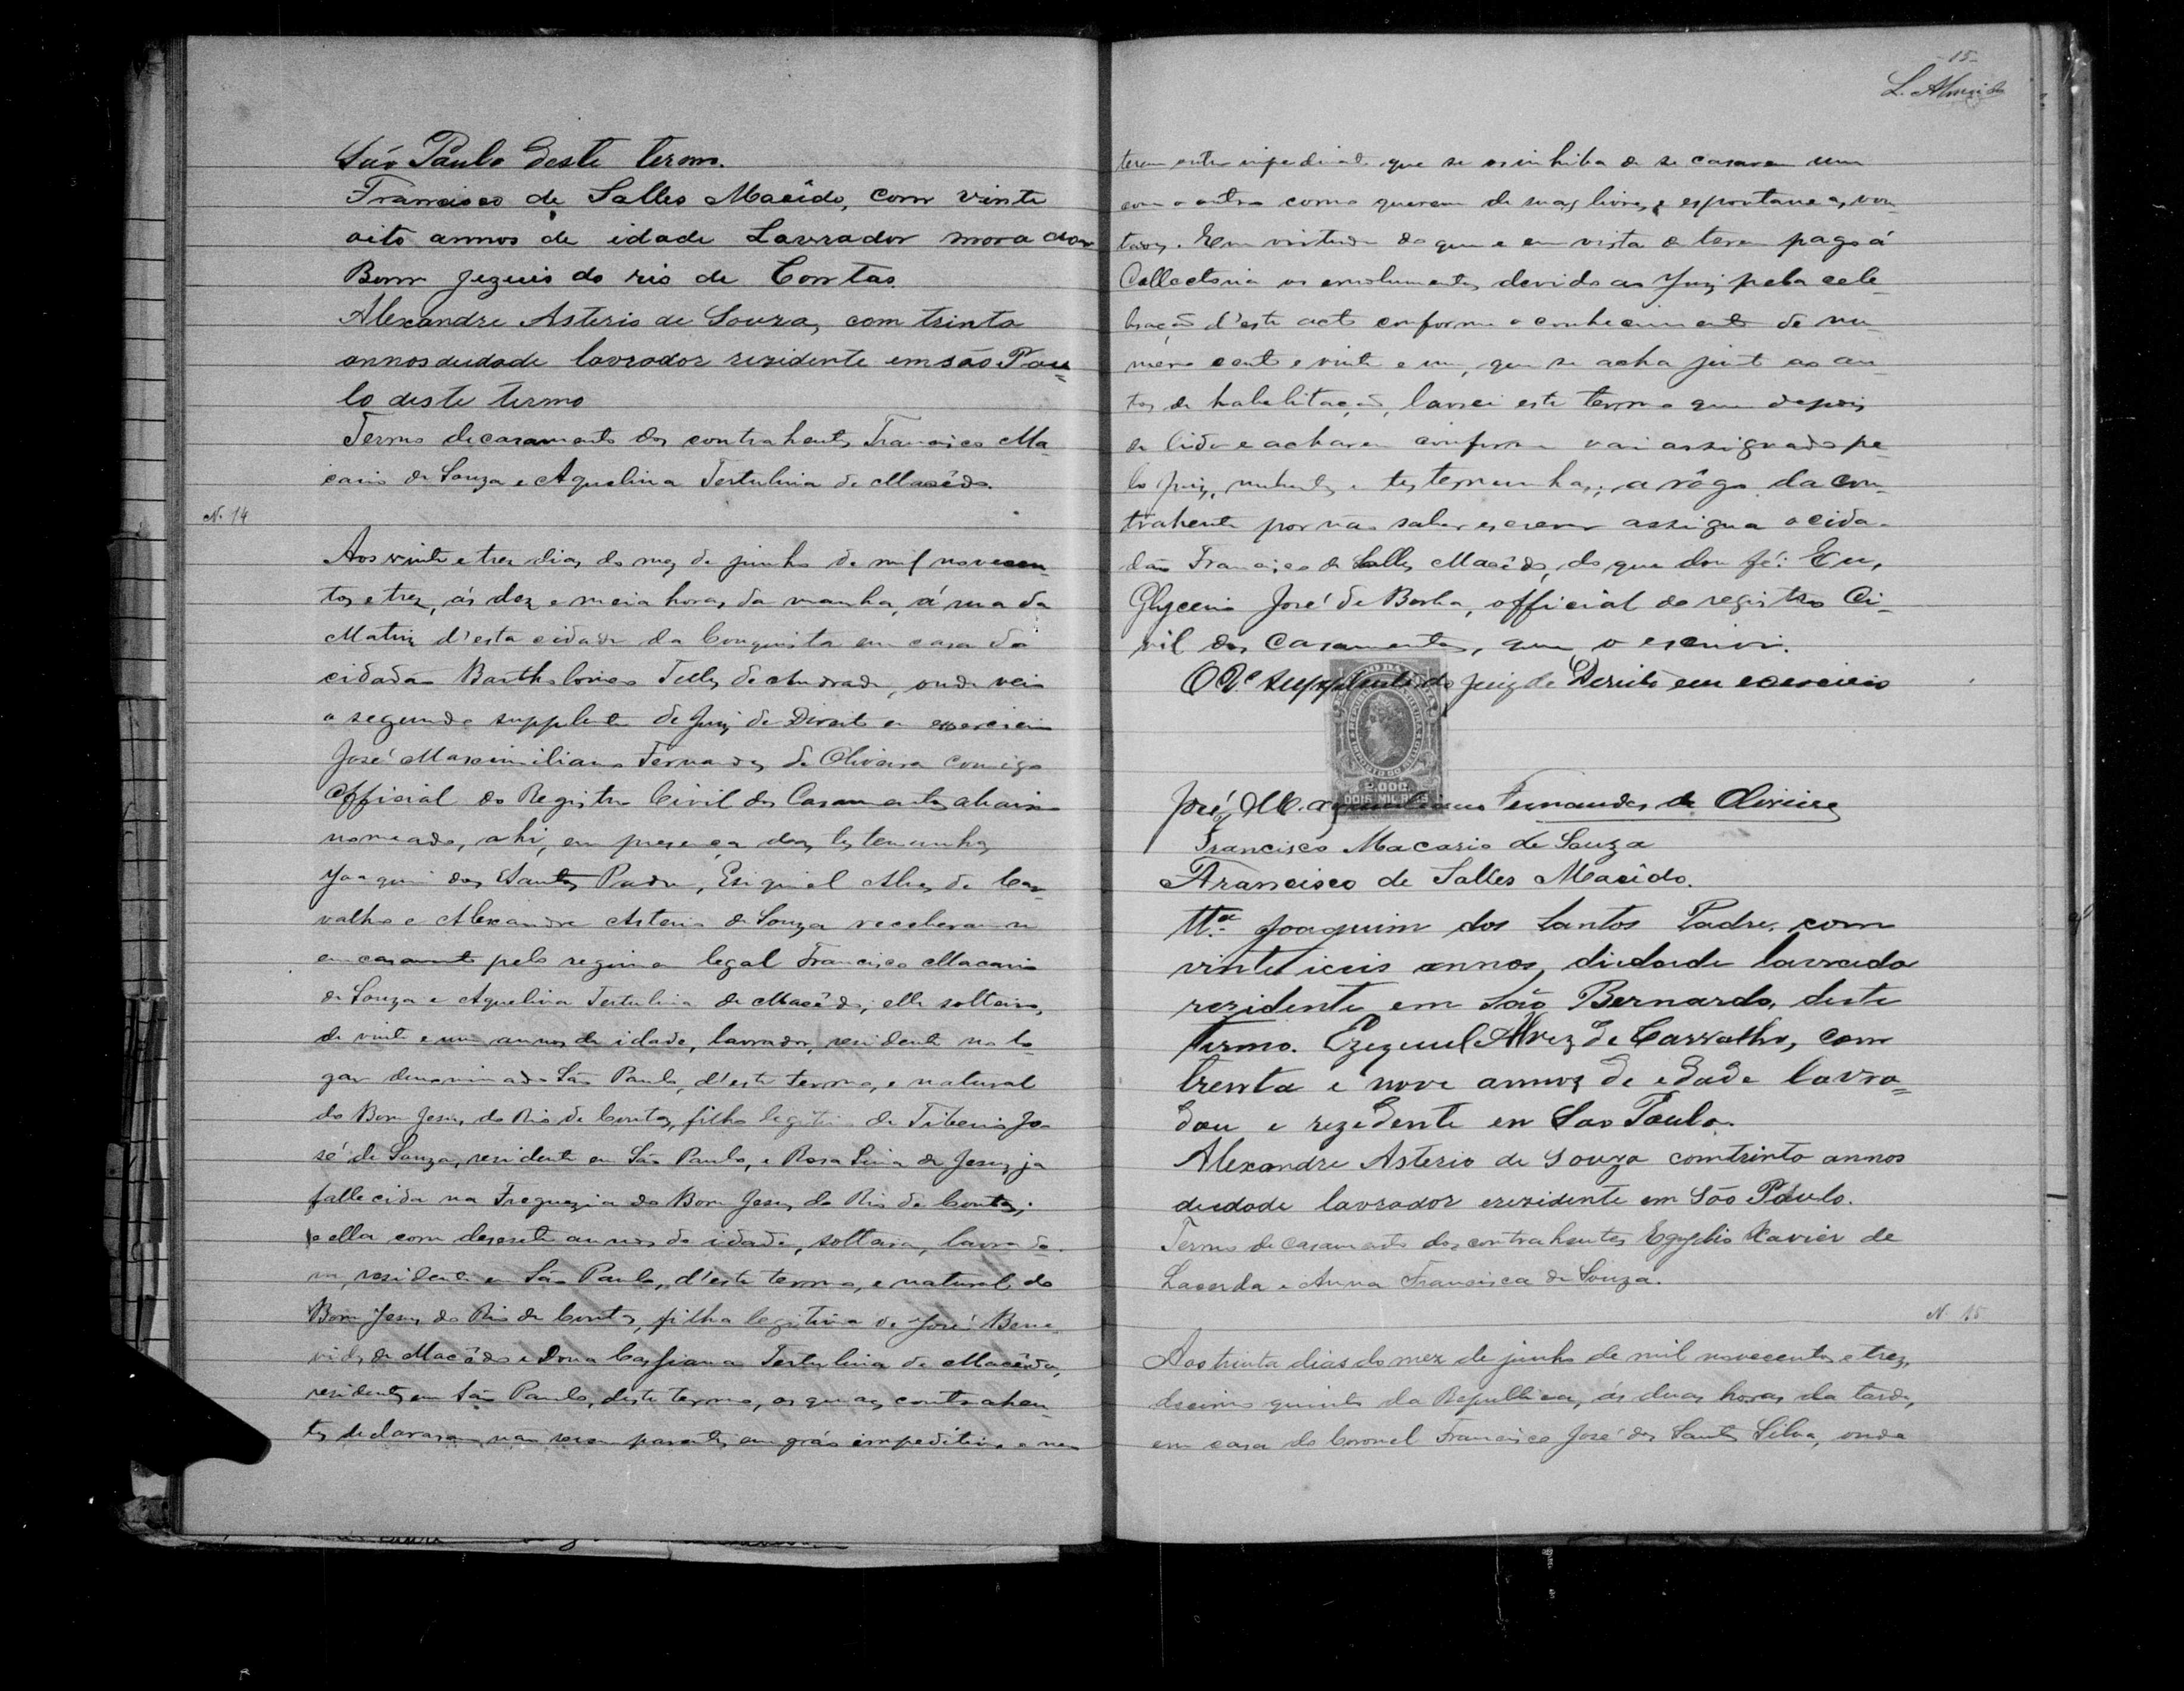 São Paulo deste termo.
Francisco de Salles Macêdo, com vinte
oito annos de idade Lavrador morador
Bom Jezuis do rio de Contas.
Alexandre Asterio de Souza, com trinta
annos deidade lavrador rezidente em são Pau=
lo deste termo
Termo de casamento dos contrahentes Francisco Ma-
cario de Souza e Aquelina Tertulina de Macêdo.
N. 14
Aos vinte e tres dias do mez de junho de mil novecen-
tos e tres, ás dez e meia horas da manha, á rua da
Matriz d'esta cidade da Conquista em casa do
cidadão Bartholomeo Telles de Andrade, onde veio
o segundo supplente de Juiz de Direito em exercicio
José Maximiliano Fernandes de Oliveira comigo
Official do Registro Civil dos Casamentos abaixo
nomeado, ahi, em presença das testemunhas
Joaquim dos Santos Padre, Esiquiel Alves de Car-
valho e Alexandre Asterio de Souza receberam se
em casamento pelo regimen legal Francisco Macario
de Souza e Aquelina Tertulina de Macêdo; elle solteiro,
de vinte e um annos de idade, lavrador, residente no lo-
gar denominado São Paulo, d'este termo, e natural
do Bom Jesus do Rio de Contas, filho legitimo de Tiberio Jo-
sé de Souza, residente em São Paulo, e Rosa Lina de Jesus ja
fallecida na Freguezia do Bom Jesus do Rio de Contas;
e ella com desesete annos de idade, solteira, lavrado-
ra, residente em São Paulo, d'este termo, e natural do
Bom Jesus do Rio de Contas, filha legitima de José Bene-
vides de Macêdo e Dona Cassiana Tertulina de Macêdo,
residentes em São Paulo, deste termo, os quaes contrahen-
tes declararam não serem parentes em gráo impeditivo e nem
-15-
L. Almeida
terem outro impedimento que se os inhiba de se casarem um
com o outro como querem de suas livres e espontaneas von-
tades. Em virtude do que e em vista de terem pago á
Collectoria os emolumentos devidos ao Juiz pela cele-
bração d'este acto conforme o conhecimento de nu-
mero cento e vinte e um, que se acha junto ao au-
tos de habelitação, lavrei este termo que depois
de lido e acharem conforme vai assignado pe-
lo Juiz, nubentes e testemunhas; a rôgo da con-
trahente por não saber escrever assigna o cida-
dão Francisco de Salles Macêdo, do que dou fé. Eu,
Glycerio José de Borba, official do registro Ci-
vil dos Casamentos, que o escrevi.
O 2º Supplente do Juiz de Direito em exercicio
2.000
DOIS MIL REIS
José Maximiliano Fernandes de Oliveira
Francisco Macario de Souza
Francisco de Salles Macêdo.
Ttª Joaquim dos Santos Padre, com
vinte iceis annos, diedade lavrado
rezidente em São Bernardo, deste
termo. Ezequiel Alvez de Carvalho, com
trenta e nove annos de edade lavra=
dou e rezedente en Sao Paulo.
Alexandre Asterio de Souza com trinta annos
deidade lavrador erezidente em São Paulo.
Termo de casamento dos contrahentes Egypbio Xavier de
Lacerda e Anna Francisca de Souza.
N. 15
Aos trinta dias do mez de junho de mil novecentos e trez,
decimo quinto da Republica, ás duas horas da tarde,
em casa do Coronel Francisco José dos Santos Silva, onde